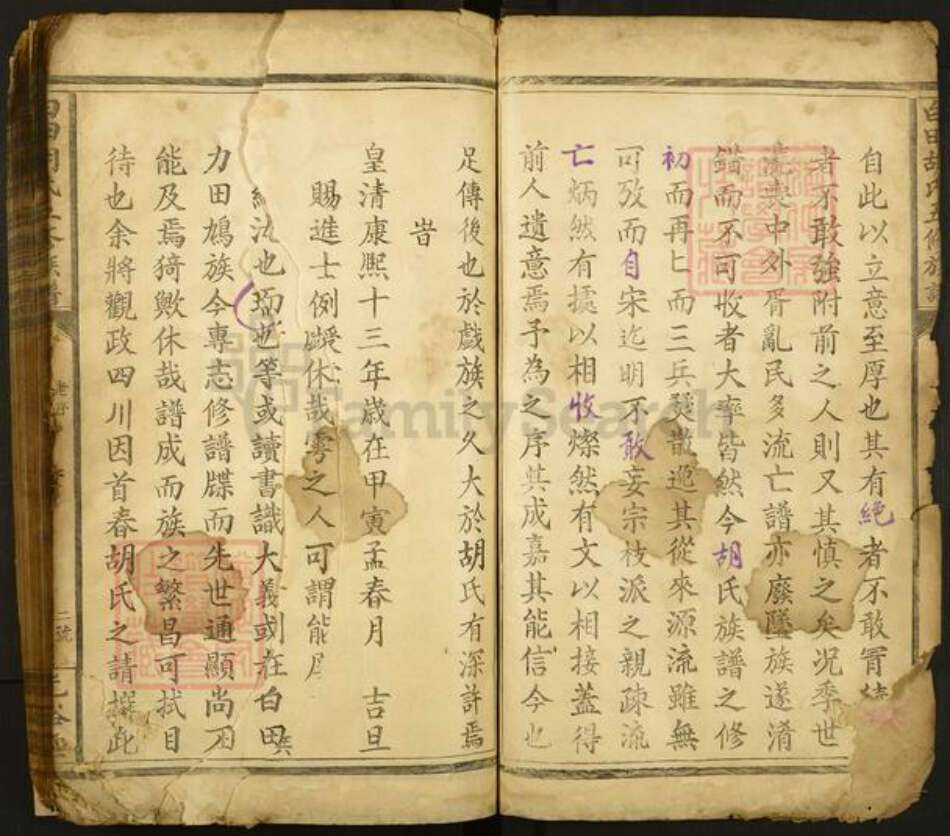 自此以立意至厚也其有絕者不敢冐續
者不敢強附前之人則又其慎之矣况季世
喪中外胥亂民多流亡譜亦廢墜族遂淆
錯而不可收者大率皆然今胡氏族譜之修
初而再匕而三兵燹散迯其從來源流雖無
可攷而自宋迄明不敢妄宗枝派之親疎流
亡炳然有據以相收燦然有文以相接蓋得
前人遺意焉予為之序其成嘉其能信今也
白田胡氏五修族譜
足傳後也於戲族之久大於胡氏有深許焉
旹
皇清康熈十三年歲在甲寅孟春月 吉旦
賜進士例
休哉
之人可謂能
法也
等或讀書識大義或在白田
力田鳩族今專志修譜牒而先世通顯尚不
能及焉猗歟休哉譜成而族之繁昌可拭目
待也余將觀政四川因首春胡氏之請撰此
二號
FamilySearch